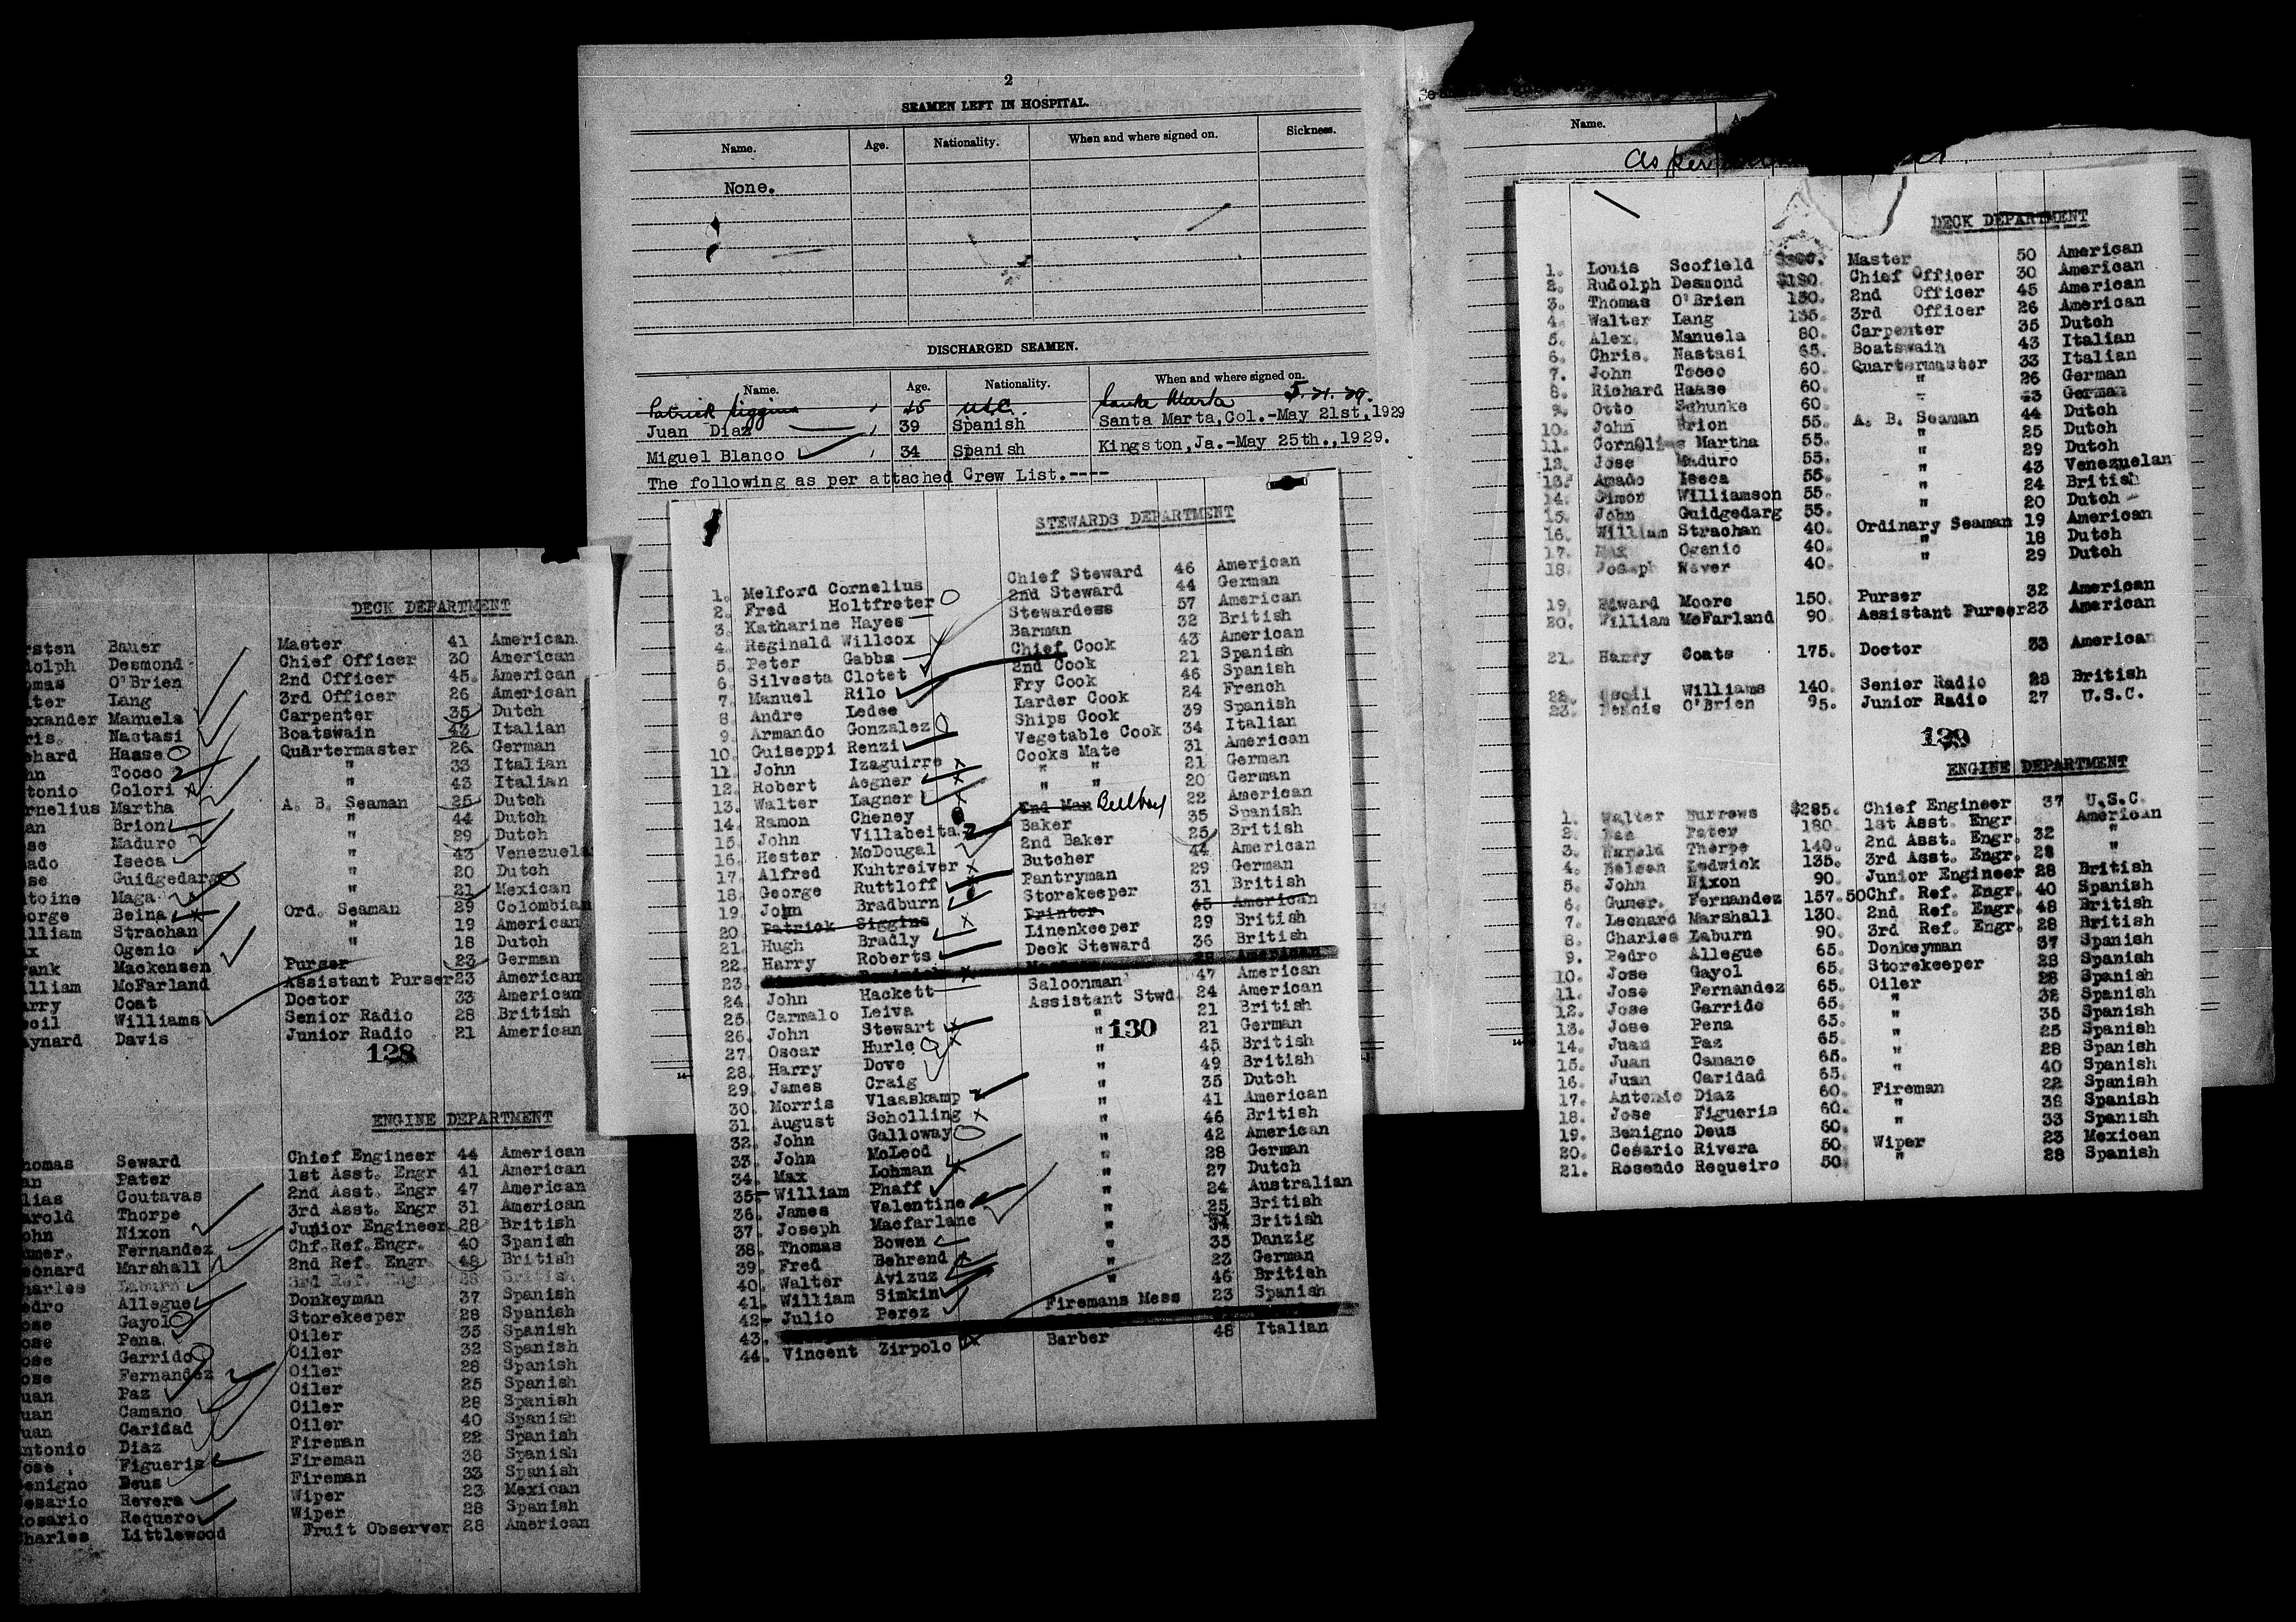 2
SEAMEN LEFT IN HOSPITAL.
Name. Age. Nationality. When and where signed on. Sickness.
None.
DISCHARGED SEAMEN.
Name. Age. Nationality. When and where signed on.
Patrick Siggins 45 U.S.C. Santa Marta 5.21.29.
Juan Diaz 39 Spanish Santa Marta, Col.-May 21st, 1929
Miguel Blanco 34 Spanish Kingston, Ja.-May 25th., 1929.
The following as per attached Crew List.----
STEWARDS DEPARTMENT
1. Melford Cornelius Chief Steward 46 American
2. Fred Holtfreter 2nd Steward 44 German
3. Katharine Hayes Stewardess 57 American
4. Reginald Willcox Barman 32 British
5. Peter Gabba Chief Cook 43 American
6. Silvesta Clotet 2nd Cook 21 Spanish
7. Manuel Rilo Fry Cook 46 Spanish
8. Andre Ledee Larder Cook 24 French
9. Armando Gonzalez Ships Cook 39 Spanish
10. Guiseppi Renzi Vegetable Cook 34 Italian
11. John Izaguirre Cooks Mate 31 American
12. Robert Aegner " " 21 German
13. Walter Lagner " " 20 German
14. Ramon Cheney 2nd Man Bellboy 22 American
15. John Villabeita Baker 35 Spanish
16. Hester McDougal 2nd Baker 25 British
17. Alfred Kuhtreiver Butcher 44 American
18. George Ruttloff Pantryman 29 German
19. John Bradburn Storekeeper 31 British
20. Patrick Siggins Printer 45 American
21. Hugh Bradly Linenkeeper 29 British
22. Harry Roberts Deck Steward 36 British
23. 28 American
24. John Hackett Saloonman 47 American
25. Carmalo Leiva Assistant Stwd. 24 American
26. John Stewart " 21 British
27. Oscar Hurle " 21 German
130
28. Harry Dove " 45 British
29. James Craig " 49 British
30. Morris Vlaaskamp " 35 Dutch
31. August Scholling " 41 American
32. John Galloway " 46 British
33. John McLeod " 42 American
34. Max Lohman " 28 German
35. William Phaff " 27 Dutch
36. James Valentine " 24 Australian
37. Joseph Macfarlane " 25 British
38. Thomas Bowen " 34 British
39. Fred Behrend " 35 Danzig
40. Walter Avizuz " 23 German
41. William Simkin " 46 British
42. Julio Perez Firemans Mess 23 Spanish
43.
44. Vincent Zirpolo Barber 48 Italian
DECK DEPARTMENT
rsten Bauer Master 41 American
olph Desmond Chief Officer 30 American
omas O'Brien 2nd Officer 45. American
lter Lang 3rd Officer 26 American
exander Manuela Carpenter 35 Dutch
ris. Nastasi Boatswain 43 Italian
chard Haase Quartermaster 26 German
hn Tocco " 33 Italian
tonio Colori " 43 Italian
rnelius Martha A. B. Seaman 25 Dutch
an Brion " 44 Dutch
se Maduro " 29 Dutch
ado Iseca " 43 Venezuela
se Guidgedarg " 20 Dutch
toine Maga " 21 Mexican
orge Beina Ord. Seaman 29 Colombian
lliam Strachan " 19 American
x Ogenio " 18 Dutch
rank Mackensen Purser 23 German
lliam McFarland Assistant Purser 23 American
arry Coat Doctor 33 American
ecil Williams Senior Radio 28 British
aynard Davis Junior Radio 21 American
128
ENGINE DEPARTMENT
homas Seward Chief Engineer 44 American
an Pater 1st Asst. Engr 41 American
lias Coutavas 2nd Asst. Engr 47 American
arold Thorpe 3rd Asst. Engr 31 American
ohn Nixon Junior Engineer 28 British
umer. Fernandez Chf. Ref. Engr. 40 Spanish
eonard Marshall 2nd Ref. Engr 48 British
harles Laburn 3rd Ref. Engr 28 British
edro Allegue Donkeyman 37 Spanish
ose Gayol Storekeeper 28 Spanish
ose Pena Oiler 35 Spanish
ose Garrido Oiler 32 Spanish
ose Fernandez Oiler 28 Spanish
uan Paz Oiler 25 Spanish
uan Camano Oiler 28 Spanish
uan Caridad Oiler 40 Spanish
ntonio Diaz Fireman 22 Spanish
ose Figueris Fireman 38 Spanish
enigno Deus Fireman 33 Spanish
esario Revera Wiper 23 Mexican
osario Requero Wiper 28 Spanish
harles Littlewood Fruit Observer 28 American
Se
Name.
as per
DECK DEPARTMENT
1. Louis Scofield Master 50 American
2. Rudolph Desmond Chief Officer 30 American
3. Thomas O'Brien 150. 2nd Officer 45 American
4. Walter Lang 135. 3rd Officer 26 American
5. Alex. Manuela 80. Carpenter 35 Dutch
6. Chris. Nastasi 65. Boatswain 43 Italian
7. John Tocco 60. Quartermaster 33 Italian
8. Richard Haase 60. " 26 German
9. Otto Schunke 60. " 43 German
10. John Brion 55. A. B. Seaman 44 Dutch
11. Cornelius Martha 55. " 25 Dutch
12. Jose Maduro 55. " 29 Dutch
13. Amado Iseca 55. " 43 Venezuelan
14. Simon Williamson 55. " 24 British
15. John Guidgedarg 55. " 20 Dutch
16. William Strachan 40. Ordinary Seaman 19 American
17. Max Ogenio 40. " 18 Dutch
18. Joseph Wever 40. " 29 Dutch
19. Edward Moore 150. Purser 32 American
20. William McFarland 90. Assistant Purser 23 American
21. Harry Coats 175. Doctor 33 American
22. Cecil Williams 140. Senior Radio 28 British
23. Dennis O'Brien 95. Junior Radio 27 U.S.C.
129
ENGINE DEPARTMENT
1. Walter Burrows $285. Chief Engineer 37 U.S.C.
2. Dan Pater 180. 1st Asst. Engr American
3. Harold Thorpe 140. 2nd Asst. Engr. 32 "
4. Nelson Ledwick 135. 3rd Asst. Engr. 28 "
5. John Nixon 90. Junior Engineer 28 British
6. Gumer. Fernandez 157.50 Chf. Ref. Engr. 40 Spanish
7. Leonard Marshall 130. 2nd Ref. Engr. 48 British
8. Charles Laburn 90. 3rd Ref. Engr. 28 British
9. Pedro Allegue 65. Donkeyman 37 Spanish
10. Jose Gayol 65. Storekeeper 28 Spanish
11. Jose Fernandez 65. Oiler 28 Spanish
12. Jose Garrido 65. " 32 Spanish
13. Jose Pena 65. " 35 Spanish
14. Juan Paz 65. " 25 Spanish
15. Juan Camano 65. " 28 Spanish
16. Juan Caridad 65. " 40 Spanish
17. Antonio Diaz 60. Fireman 22 Spanish
18. Jose Figueris 60. " 38 Spanish
19. Benigno Deus 60. " 33 Spanish
20. Cesario Rivera 50. Wiper 23 Mexican
21. Rosendo Requeiro 50. " 28 Spanish